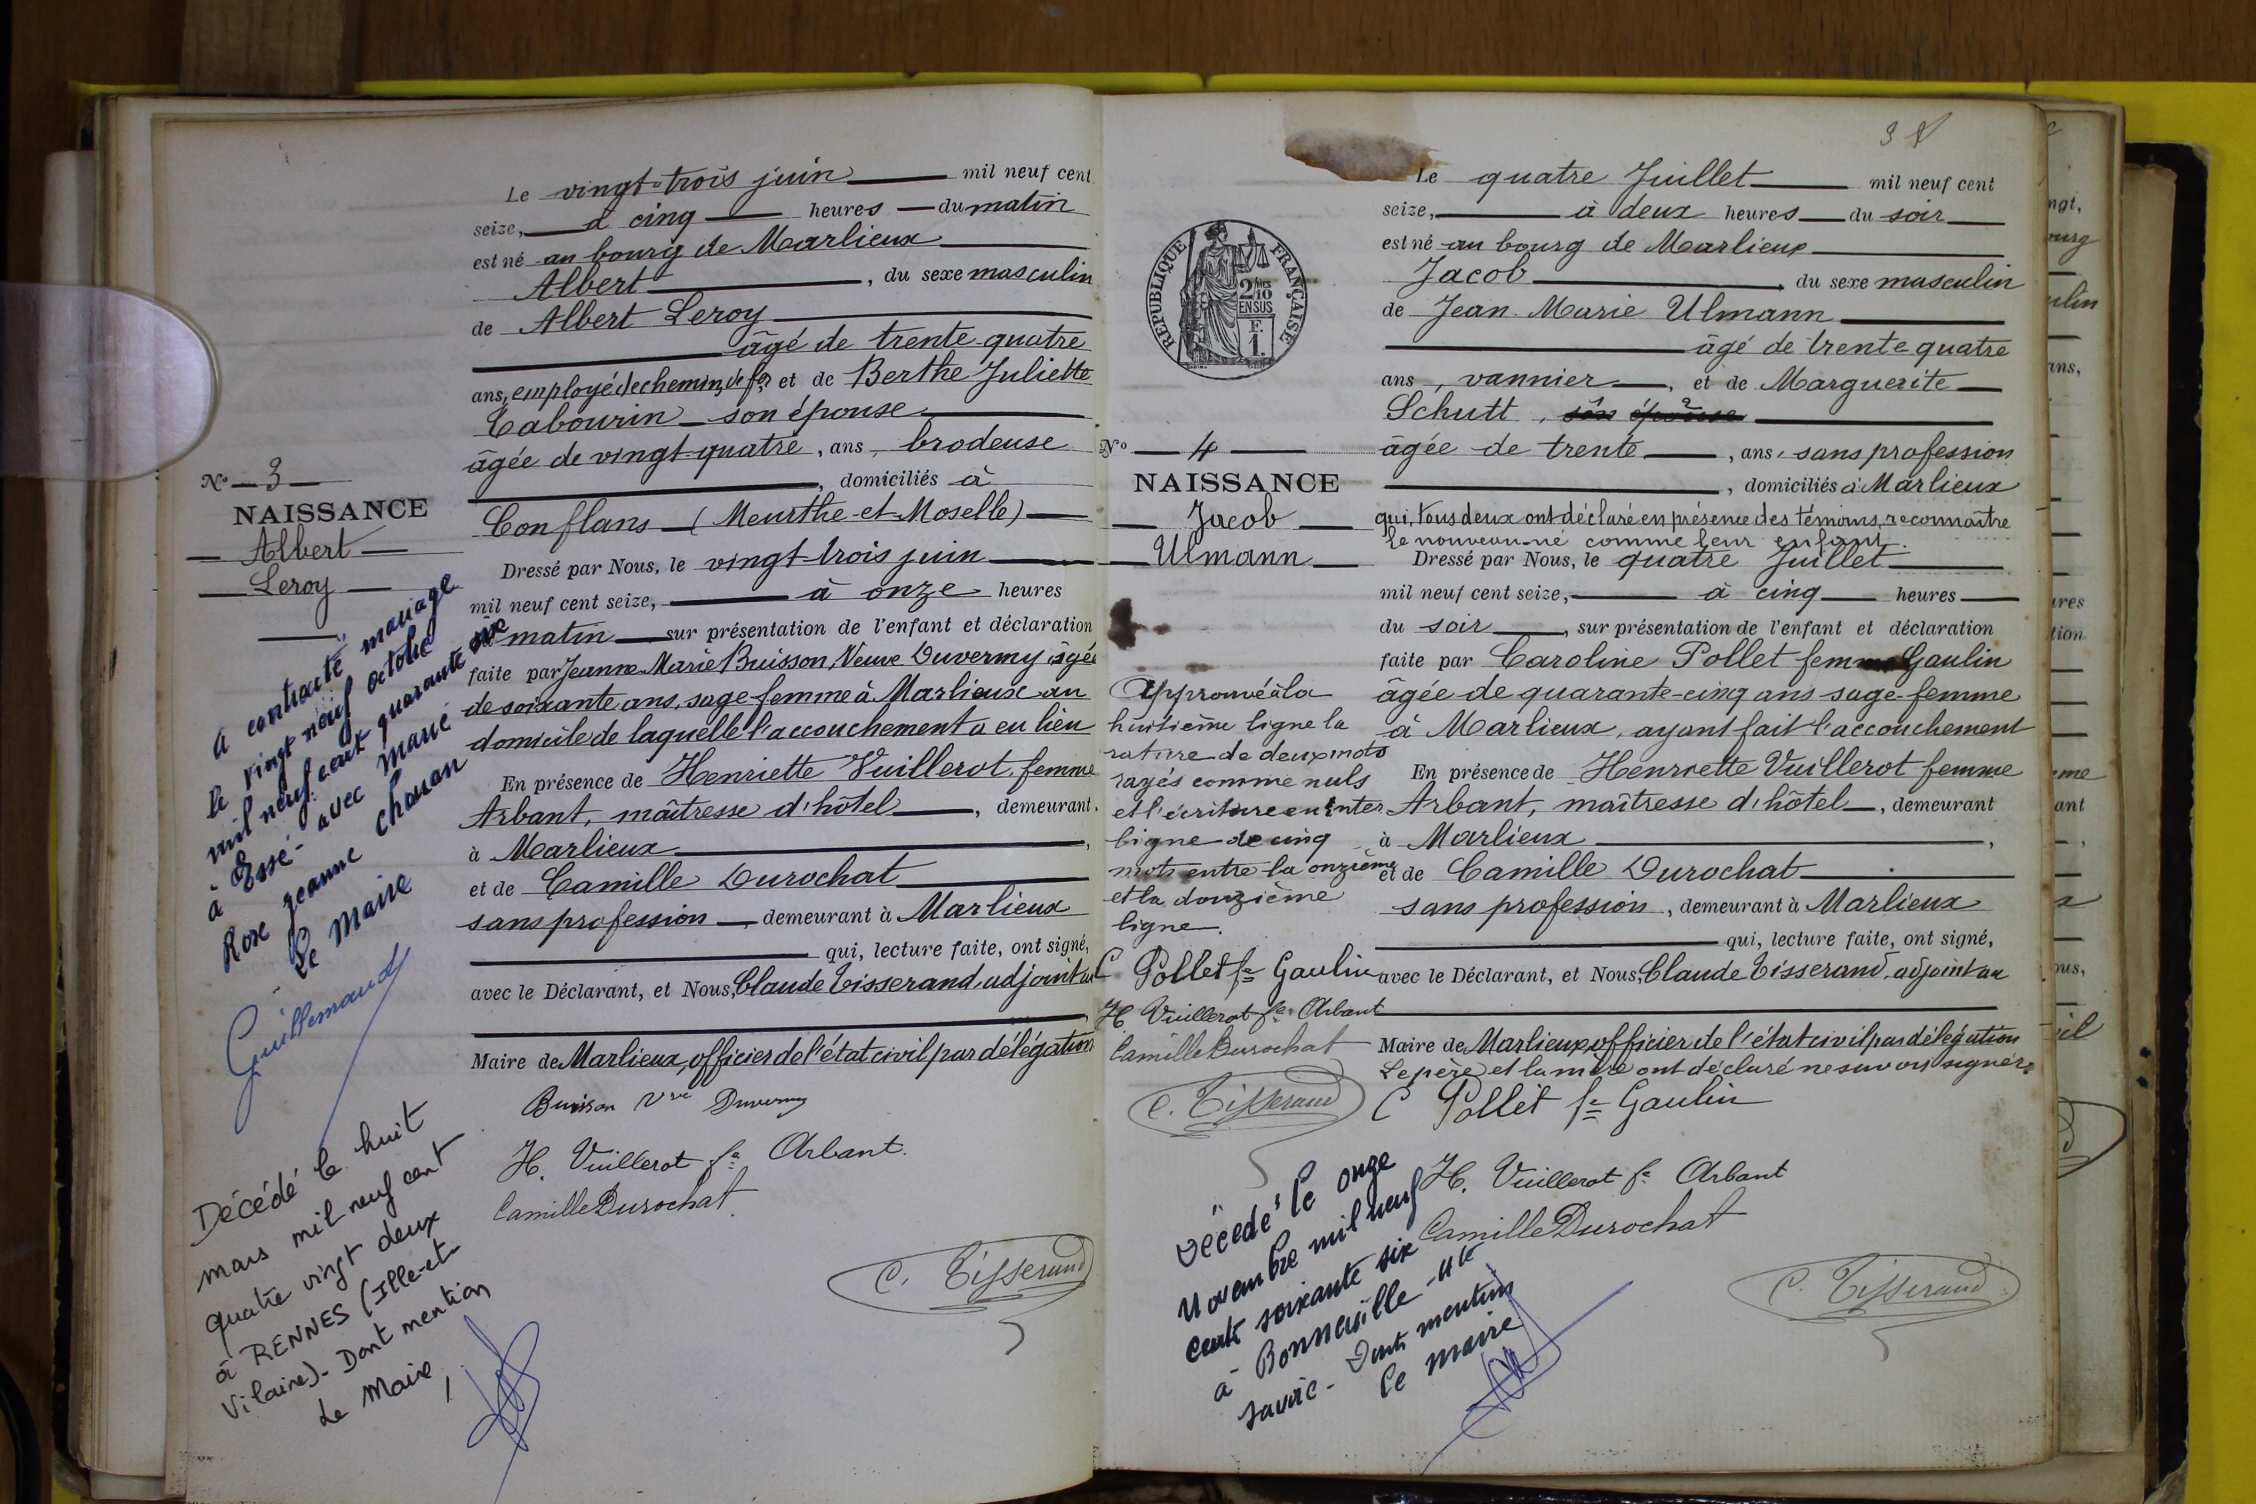 Le vingt-trois juin mil neuf cent
seize, à cinq heures du matin
est né au bourg de Marlieux
Albert, du sexe masculin
de Albert Leroy
âgé de trente-quatre
ans, employé de chemin de fer et de Berthe Juliette
Tabourin son épouse
âgée de vingt-quatre, ans, brodeuse
, domiciliés à
Conflans (Meurthe-et-Moselle)
Dressé par Nous, le vingt-trois juin
mil neuf cent seize, à onze heures
du matin sur présentation de l'enfant et déclaration
faite par Jeanne Marie Buisson, Veuve Duvermy, agée
de soixante ans, sage-femme à Marlieux au
domicile de laquelle l'accouchement a eu lieu
En présence de Henriette Vuillerot, femme
Arbant, maîtresse d'hôtel, demeurant
à Marlieux,
et de Camille Durochat
sans profession, demeurant à Marlieux
qui, lecture faite, ont signé,
avec le Déclarant, et Nous, Claude Tisserand, adjoint au
Maire de Marlieux, officier de l'état civil par délégation
Buisson Vve Duvermy
H. Vuillerot fe Arbant.
Camille Durochat
C. Tisserand
No 3
NAISSANCE
Albert
Leroy
a contracté mariage
le vingt neuf octobre
mil neuf cent quarante six
à Essé - avec Marie
Rose Jeanne Chouan
Le Maire
Guillemaud
Décédé le huit
mars mil neuf cent
quatre vingt deux
à RENNES (Ille-et-
Vilaine). Dont mention
Le Maire,
38
Le quatre Juillet mil neuf cent
seize, à deux heures du soir
est né au bourg de Marlieux
Jacob, du sexe masculin
de Jean-Marie Ulmann
âgé de trente-quatre
ans, vannier, et de Marguerite
Schutt, son épouse
âgée de trente, ans, sans profession
, domiciliés à Marlieux
qui, tous deux ont déclaré en présence des témoins, reconnaître
le nouveau-né comme leur enfant.
Dressé par Nous, le quatre Juillet
mil neuf cent seize, à cinq heures
du soir, sur présentation de l'enfant et déclaration
faite par Caroline Pollet femme Gaulin
âgée de quarante-cinq ans sage-femme
à Marlieux, ayant fait l'accouchement
En présence de Henriette Vuillerot femme
Arbant, maîtresse d'hôtel, demeurant
à Marlieux,
et de Camille Durochat
sans profession, demeurant à Marlieux
qui, lecture faite, ont signé,
avec le Déclarant, et Nous, Claude Tisserand, adjoint au
Maire de Marlieux, officier de l'état civil par délégation
Le père et la mère ont déclaré ne savoir signer.
C Pollet fe Gaulin
H. Vuillerot fe Arbant
Camille Durochat
C. Tisserand
RÉPUBLIQUE FRANÇAISE
2/10
EN SUS
F.
1.
No 4
NAISSANCE
Jacob
Ulmann
Approuvé à la
huitième ligne la
rature de deux mots
rayés comme nuls
et l'écriture en inter
ligne de cinq
mots entre la onzième
et la douzième
ligne.
C Pollet fe Gaulin
H. Vuillerot fe Arbant
Camille Durochat
C. Tisserand
Décédé le onze
novembre mil neuf
cent soixante six
à Bonneville - Hte
Savoie - Dont mention
Le Maire